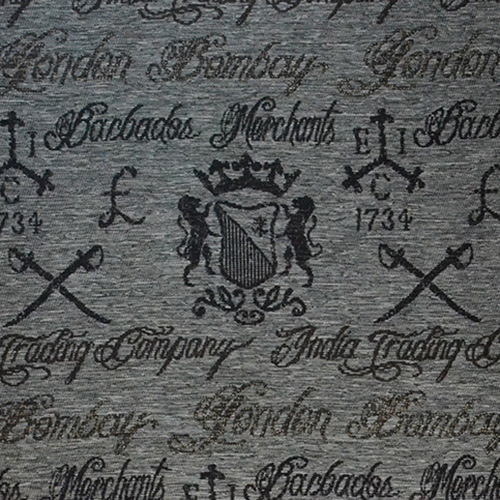 India Trading Company
London Bombay London
I Barbados Merchants E I Barb
C
1734 £ 1734 £
Trading Company India Trading C
Bombay London Bombay
Merchants E I Barbados Merch